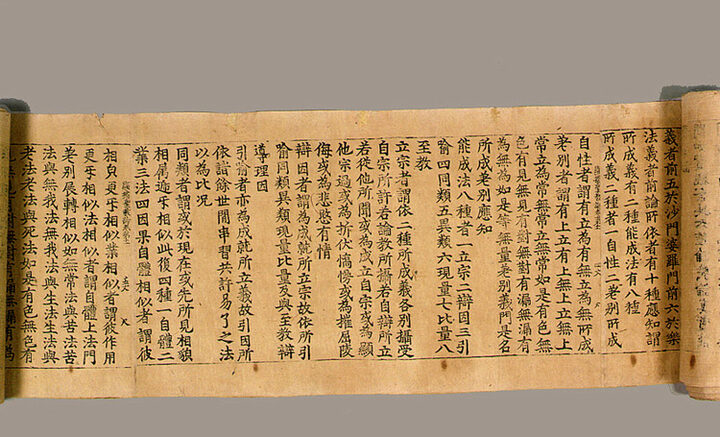 義者前五於沙門婆羅門前六於樂
法義者前論所依者有十種應知謂
所成義有二種能成法有八種
所成義二種者一自性二差別所成
自性者謂有立為有無立為無所成
差別者謂有上立有上無上立無上
常立為常無常立無常如是有色無
色有見無見有對無對有漏無漏有
為無為如是等無量差別義門是名
所成差別應知
能成法八種者一立宗二辯因三引
喻四同類五異類六現量七比量八
至教
立宗者謂依二種所成義各別攝受
自宗所許若論教所攝若自辯所立
若從他所聞或為成立自宗或為顯
他宗過或為折伏憍慢或為摧屈陵
侮或為悲愍有情
辯因者謂為成就所立宗故依所引
喻同類異類現量比量及與至教辯
導理因
引喻者亦為成就所立義故引因所
依諸餘世間串習共許易了之法
以為比况
同類者謂或於現在或先所見相貌
相屬遞互相似此復四種一自體二
業三法四因果自體相似者謂彼
相㒵更互相似業相似者謂彼作用
更互相似法相似者謂自體上法門
差別展轉相似如無常法與苦法苦
法與無我法無我法與生法生法與
老法老法與死法如是有色無色有